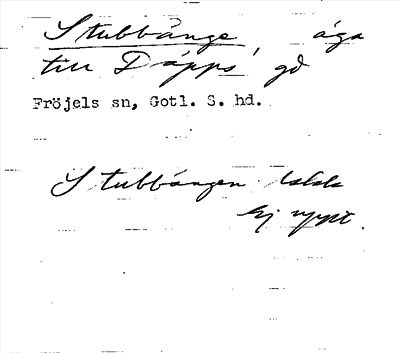 Stubbånge äga
till Däpps, gd
Fröjels sn, Gotl. S. hd.
Stubbången
Ej uppt.